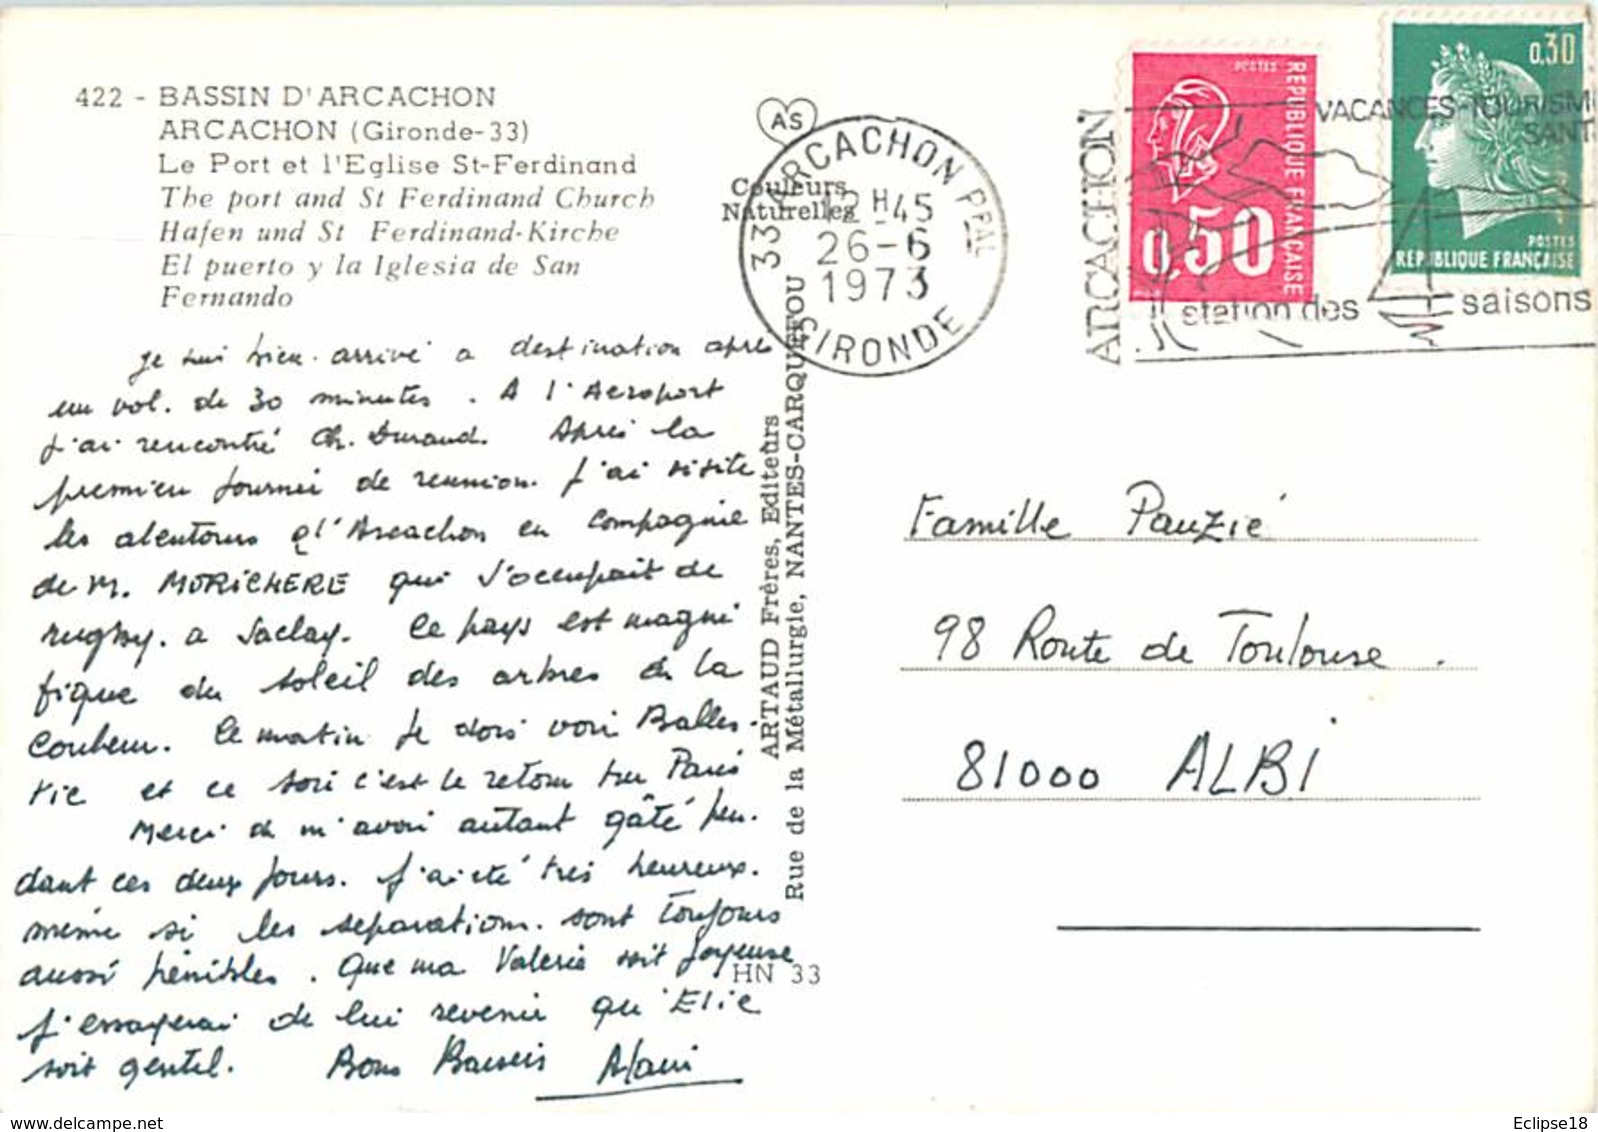 422 - BASSIN D'ARCACHON
ARCACHON (Gironde-33)
Le Port et l'Eglise St-Ferdinand
The port and St Ferdinand Church
Hafen und St Ferdinand-Kirche
El puerto y la Iglesia de San
Fernando
AS
Couleurs
Naturelles
33 ARCACHON PPAL
12 H 45
26-6
1973
GIRONDE
ARCACHON
VACANCES-TOURISM
SANT
station des 4 saisons
0,50
POSTES
REPUBLIQUE FRANÇAISE
0,30
POSTES
REPUBLIQUE FRANÇAISE
Je suis bien arrivé a destination apres
un vol. de 30 minutes. A l'Aeroport
j'ai rencontré Ch. Durand. Après la
premieu journeé de reunion. J'ai visite
les alentours d'Arcachon en compagnie
de M. MORICHERE qui s'occupait de
rugby. a Saclay. Ce pays est magni
fique du soleil des arbres de la
couleur. Ce matin je dois voir Balles-
tic et ce soir c'est le retour sur Paris
Merci de m'avoir autant gâté pen-
dant ces deux jours. J'ai été très heureux.
même si les separations. sont toujours
aussi pénibles. Que ma Valerie soit joyeuse
j'essayerai de lui revenir qu'Elle
soit gentil. Bons Baisers Alain
ARTAUD Frères, Editeurs
Rue de la Métallurgie, NANTES-CARQUEFOU
HN 33
Famille Pauzié
98 Route de Toulouse.
81000 ALBI
Eclipse18